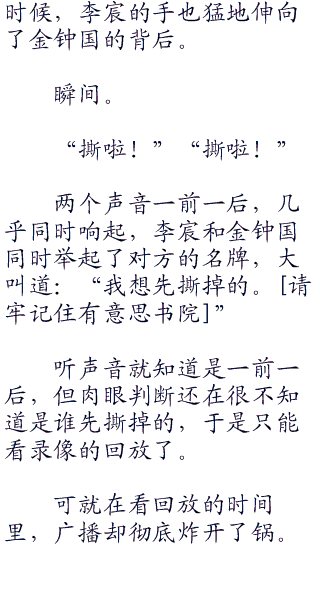 时候，李宸的手也猛地伸向
了金钟国的背后。
瞬间。
“撕啦！”“撕啦！”
两个声音一前一后，几
乎同时响起，李宸和金钟国
同时举起了对方的名牌，大
叫道：“我想先撕掉的。[请
牢记住有意思书院]”
听声音就知道是一前一
后，但肉眼判断还在很不知
道是谁先撕掉的，于是只能
看录像的回放了。
可就在看回放的时间
里，广播却彻底炸开了锅。